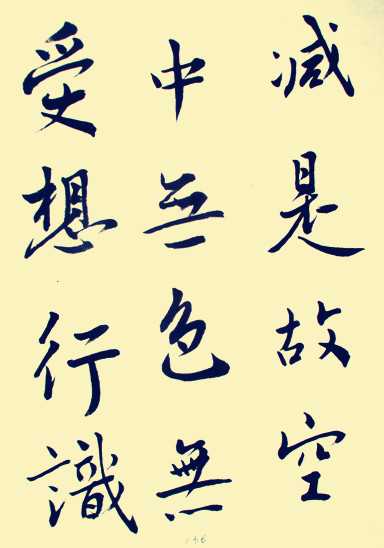 減是故空
中無色無
受想行識
146